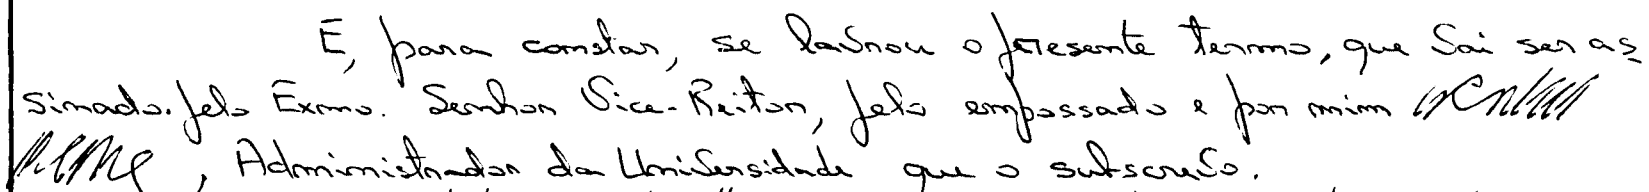 E, para constar, se lavrou o presente termo, que vai ser as
sinado pelo Exmo. Senhor Vice-Reitor, pelo empossado e por mim
, Administrador da Universidade que o subscrevo.